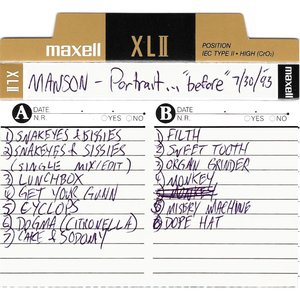 maxell XLII POSITION
IEC TYPE II • HIGH (CrO₂)
XLII maxell
MANSON - Portrait... "before" 7/30/93
A DATE
N.R. ○YES ○NO
1) SNAKEYES & SISSIES
2) SNAKEYES & SISSIES
(SINGLE MIX/EDIT)
3) LUNCHBOX
4) GET YOUR GUNN
5) CYCLOPS
6) DOGMA (CITRONELLA)
7) CAKE & SODOMY
B DATE
N.R. ○YES ○NO
1) FILTH
2) SWEET TOOTH
3) ORGAN GRINDER
4) MONKEY
5) MISERY MACHINE
6) DOPE HAT